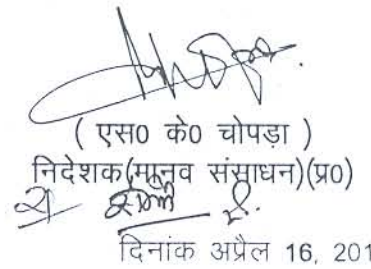 ( एस0 के0 चोपड़ा )
निदेशक(मानव संसाधन)(प्र0)
दिनांक अप्रैल 16, 201